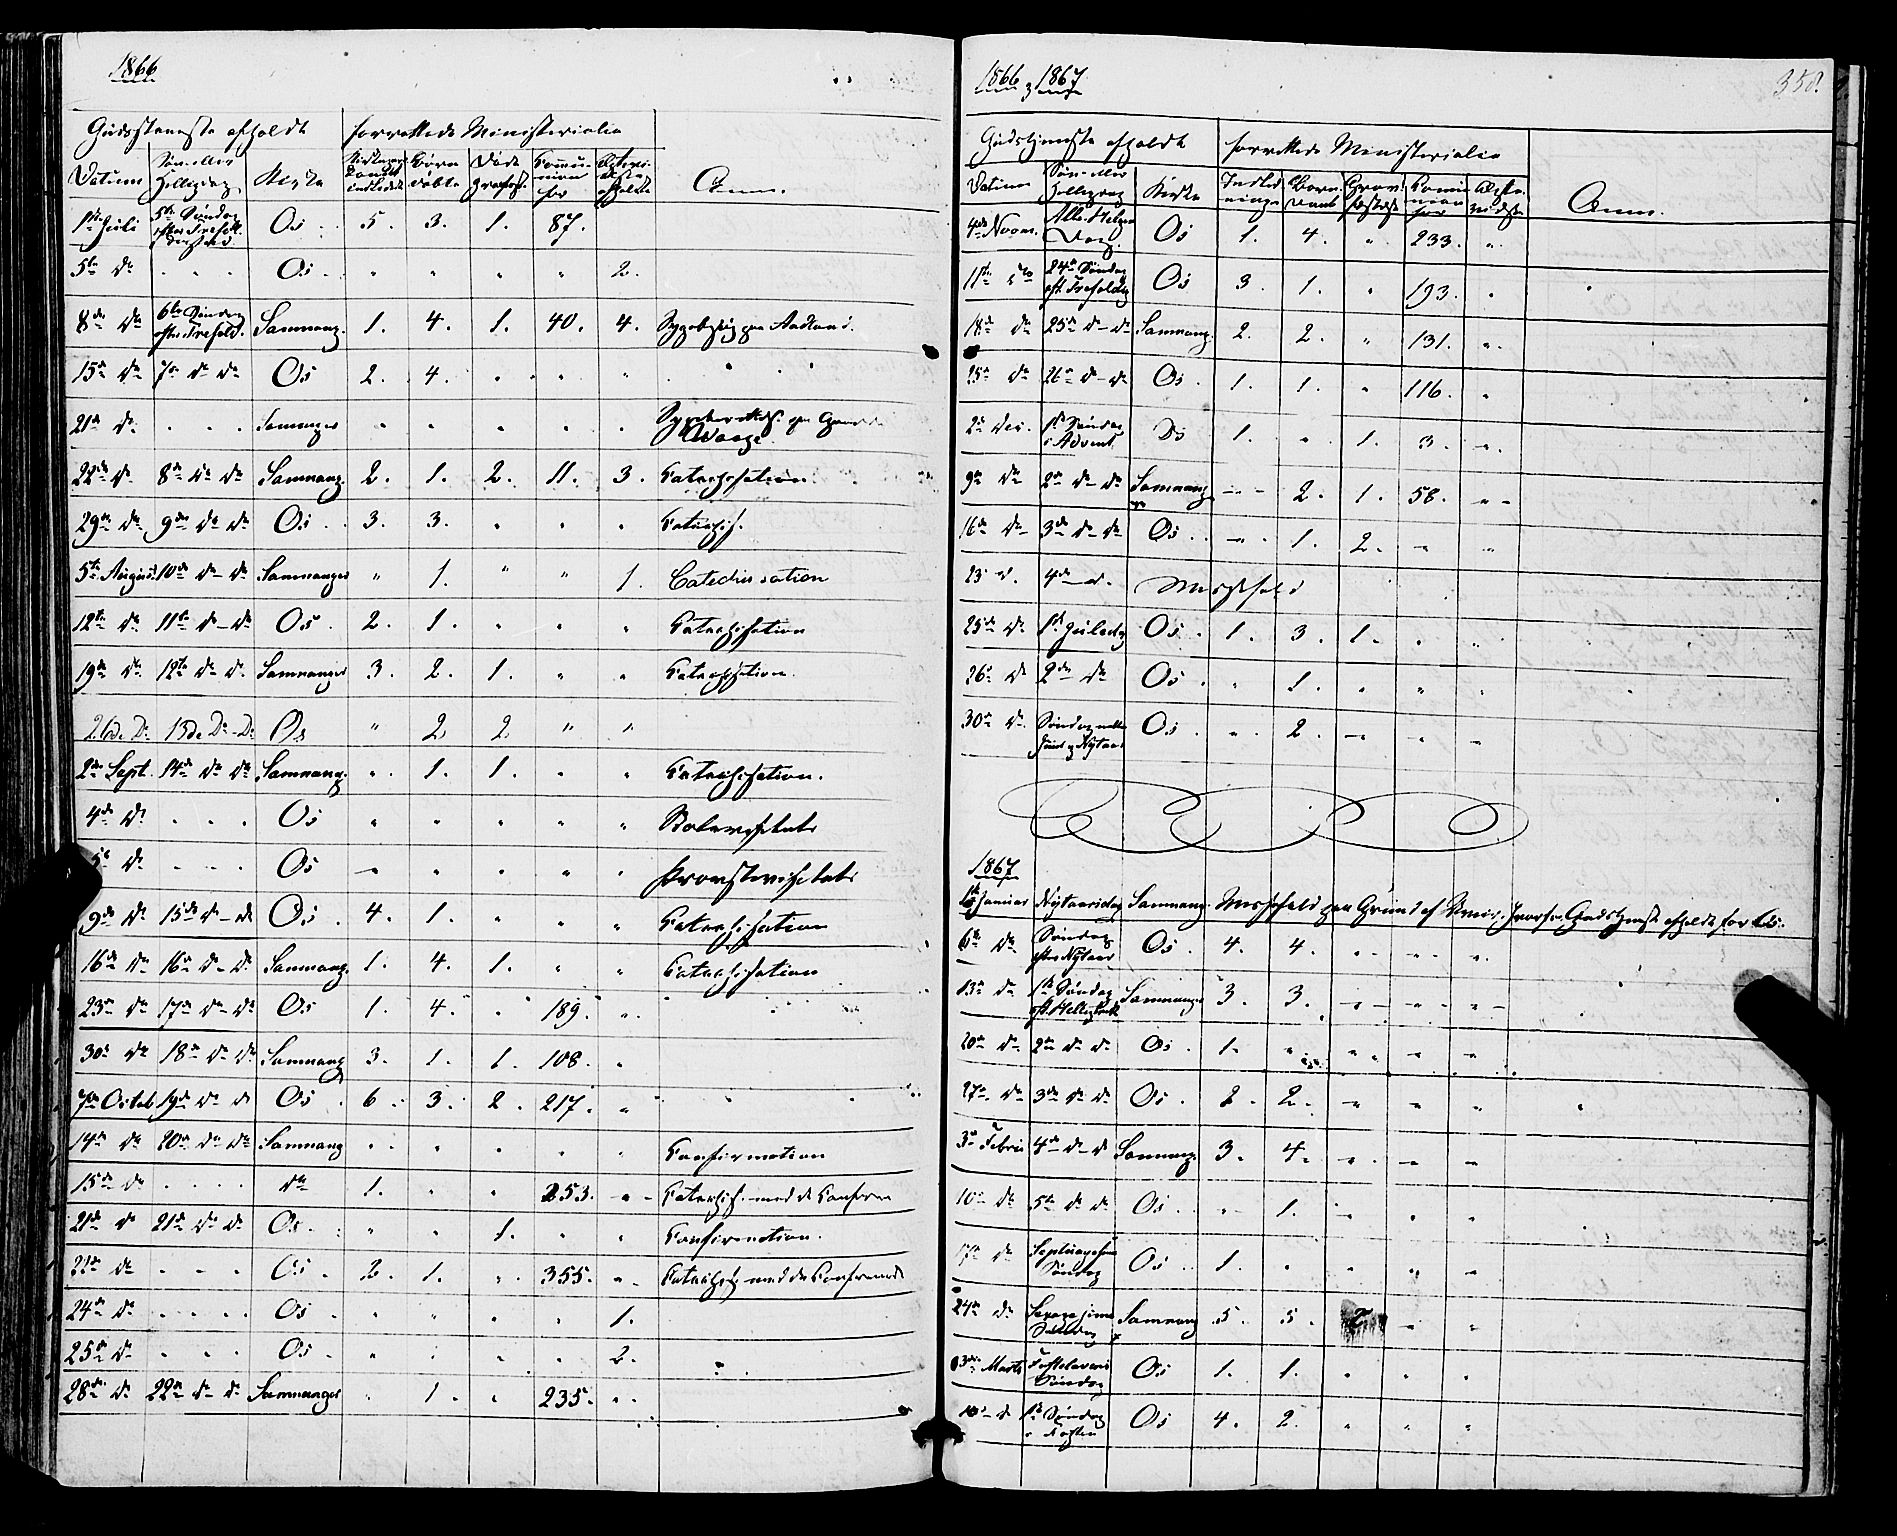 1866
Gudstjeneste afholdt forrettede Ministerialia
Datum Søn- eller Kirke Børn Døde Commu- Anm.
Helligdag indledede døbte nion
for afholdte
1ste Juli 5te Søndag Os 5. 3. 1. 87.
efter Trefold.
5te do Os " " " " 2.
8de do 6te Søndag Samnang. 1. 4. 1. 40. 4.
efter Trefold.
15de do 7de do do Os 2. 4. " " "
21de do Samnanger " " " " "
22de do 8de do do Samnang. 2. 1. 2. 11. 3. Catechisation
29de do 9de do do Os 3. 3. " " " Catechis.
5te August 10de do do Samnanger " 1. " " 1. Catechisation
12te do 11te do do Os 2. 1. " " " Catechisation
19de do 12te do do Samnanger 3. 2. 1. " " Catechisation.
26de Do 13de Do Do Os " 2 2 " "
2den Sept. 14de do do Samnang. " 1. 1. " " Catechisation.
4de do Os " " " " " Skolevisitats
5te do Os " " " " " Provstevisitats
9de do 15de do do Os 4. 1. " " " Catechisation
16de do 16de do do Samnang. 1. 4. 1. " " Catechisation
23de do 17de do do Os 1. 4. " 189. "
30de do 18de do do Samnang 3. 1. 1. 108. "
7de Octob. 19de do do Os 6. 3. 2. 217. "
14de do 20de do do Samnang " " " " " Confirmation
15de do do 1. " " 253. " Catechis. med de Confirm
21de do 21de do do Os " " 1. " " Confirmation.
22de do Os 2. 1. " 355. " Catechis. med de Confirmede
24de do Os " " " " 1.
25de do Os " " " " 2.
28de do 22de do do Samnanger " 1. " 235. "
1866 og 1867 358.
Gudstjeneste afholdt forrettede Ministerialia
Datum Søn- eller Kirke Indled- Børn Commu- Anm.
Helligdag ninger døbt nion
for
4de Novm. Alle Helgens Os 1. 4. " 233. "
Dag.
11te do 24de Søndag Os 3. 1. " 193. "
eft. Trefoldig
18de do 25de do do Samnang. 2. 2. " 131. "
25de do 26de do do Os 1. 1. " 116. "
2den Dec. 1ste Søndag Os 1. " 1. 3. "
i Advent
9de do 2den do do Samnang " 2. 1. 58. "
16de do 3de do do Os " 1. 2. " "
23de do 4de do Messefald
25de do 1ste Juledag Os 1. 3. 1. " "
26de do 2den do Os " 1. " " "
30te do Søndag mellem Os " 2. " " "
Juul og Nytaar
1867
1ste Januar Nytaarsdag Samnang. Messefald paa Grund af Uveir, hvorfor Gudstjeneste afholdt for Os.
6te do Søndag Os 4. 4. " " "
efter Nytaar
13de do 1ste Søndag Samnanger 3. 3. " " "
eft. Hellig
20de do 2den do do Os 1. " " " "
27de do 3de do do Os 2 2. " " "
3de Febru 4de do do Samnang. 3. 4. " " "
10de do 5te do do Os " 1. " " "
17de do Septuagesima Os 1. " " " "
Søndag
24de do Sexagesima Samnang 5. 5. " "
Søndag
3die Marts Fastelavns Os 1. 1. " " "
Søndag
10de do 1ste Søndag Os 4. 2. " " "
i Fasten